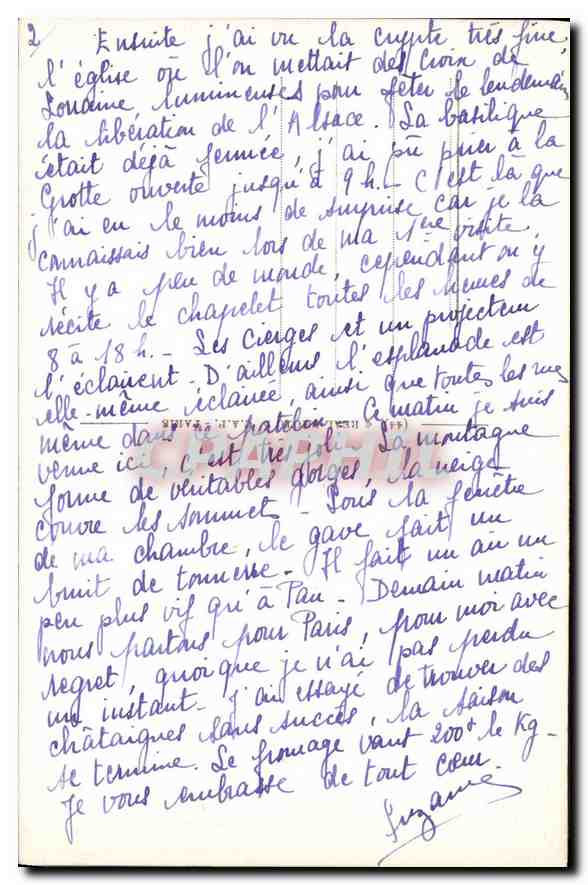 2 Ensuite j'ai vu la crypte très fine
l'église où l'on mettait des croix de
Lorraine lumineuses pour fêter le lendemain
la libération de l'Alsace. La basilique
était déjà fermée, j'ai pu prier à la
Grotte ouverte jusqu'à 9 h. - C'est là que
j'ai eu le moins de surprise car je la
connaissais bien lors de ma 1ère visite.
Il y a peu de monde, cependant on y
récite le chapelet toutes les heures de
8 à 18 h. - Les Cierges et un projecteur
l'éclairent - D'ailleurs l'esplanade est
elle-même éclairée, ainsi que toutes les rues
même dans le patelin - Ce matin je suis
venue ici, c'est très joli - La montagne
forme de véritables gorges, la neige
couvre les sommets - Sous la fenêtre
de ma chambre, le gave fait un
bruit de tonnerre - Il fait un air un
peu plus vif qu'à Pau - Demain matin
nous partons pour Paris, pour moi avec
regret, quoique je n'ai pas perdu
un instant - J'ai essayé de trouver des
châtaignes sans succès, la saison
se termine. Le fromage vaut 200f le Kg -
Je vous embrasse de tout cœur.
Suzanne
CPARAMA